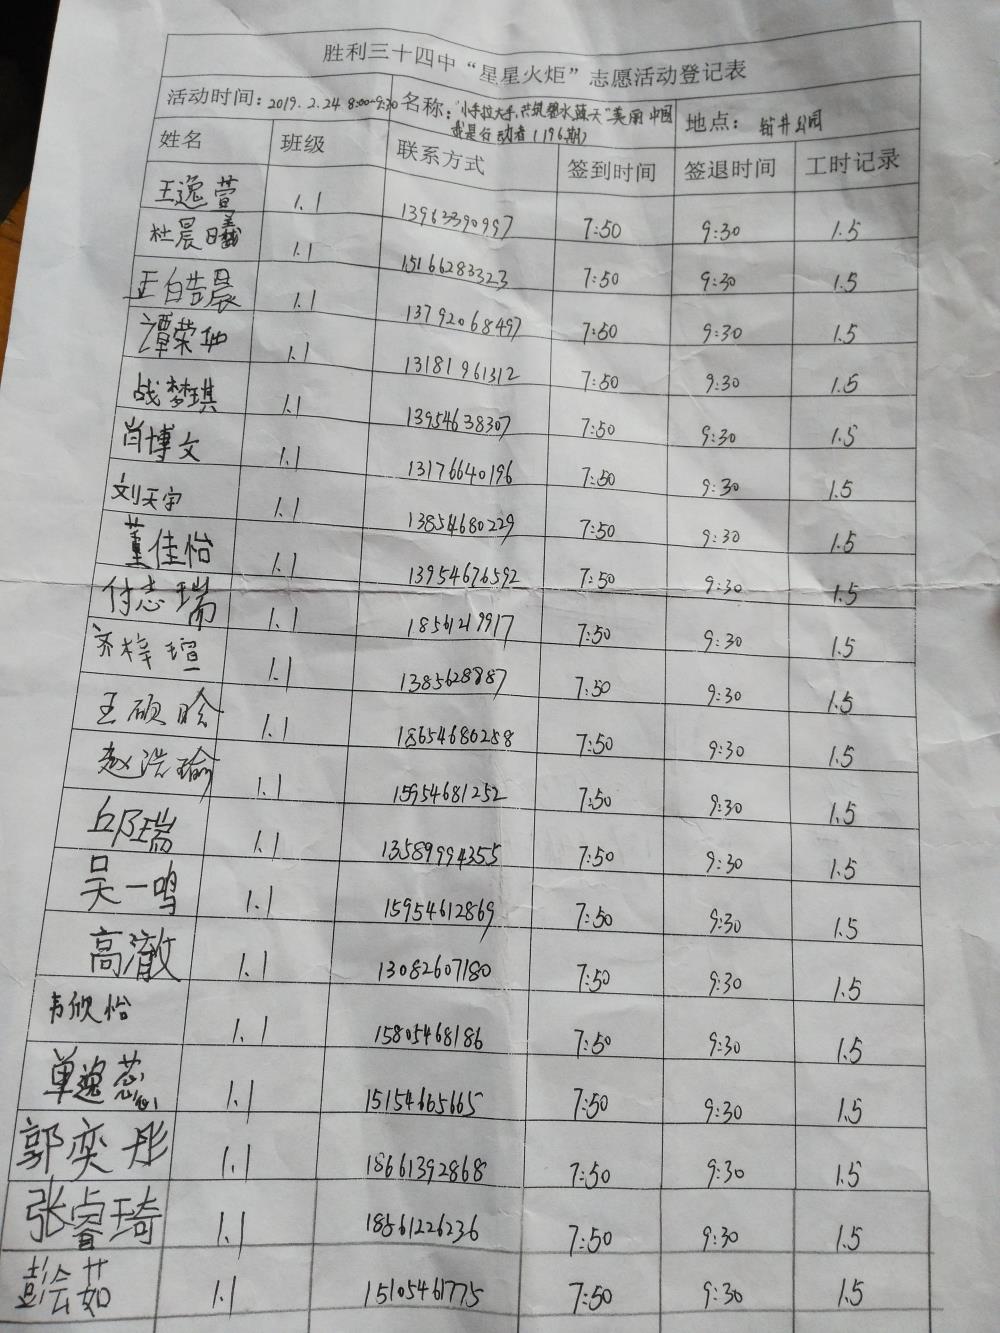 胜利三十四中“星星火炬”志愿活动登记表
活动时间：2019.2.24 8:00-9:30 名称：“小手拉大手，共筑碧水蓝天”美丽中国 地点：钻井公园
我是行动者（196期）
姓名 班级 联系方式 签到时间 签退时间 工时记录
王逸萱 1.1 13963390997 7:50 9:30 1.5
杜晨曦 1.1 15166283323 7:50 9:30 1.5
王皓晨 1.1 13792068497 7:50 9:30 1.5
谭荣 1.1 13181961312 7:50 9:30 1.5
战梦琪 1.1 13954638307 7:50 9:30 1.5
肖博文 1.1 13176640196 7:50 9:30 1.5
刘天宇 1.1 13854680229 7:50 9:30 1.5
董佳怡 1.1 13954676592 7:50 9:30 1.5
付志瑞 1.1 18561219917 7:50 9:30 1.5
齐梓瑄 1.1 1385628887 7:50 9:30 1.5
王硕晗 1.1 18654680288 7:50 9:30 1.5
赵浩瑜 1.1 15954681252 7:50 9:30 1.5
邱瑞 1.1 13589994355 7:50 9:30 1.5
吴一鸣 1.1 15954612869 7:50 9:30 1.5
高澈 1.1 13082607180 7:50 9:30 1.5
韦欣怡 1.1 15805468186 7:50 9:30 1.5
单逸蕊 1.1 15154665665 7:50 9:30 1.5
郭奕彤 1.1 18661392868 7:50 9:30 1.5
张睿琦 1.1 18561226236 7:50 9:30 1.5
彭会茹 1.1 15105461775 7:50 9:30 1.5